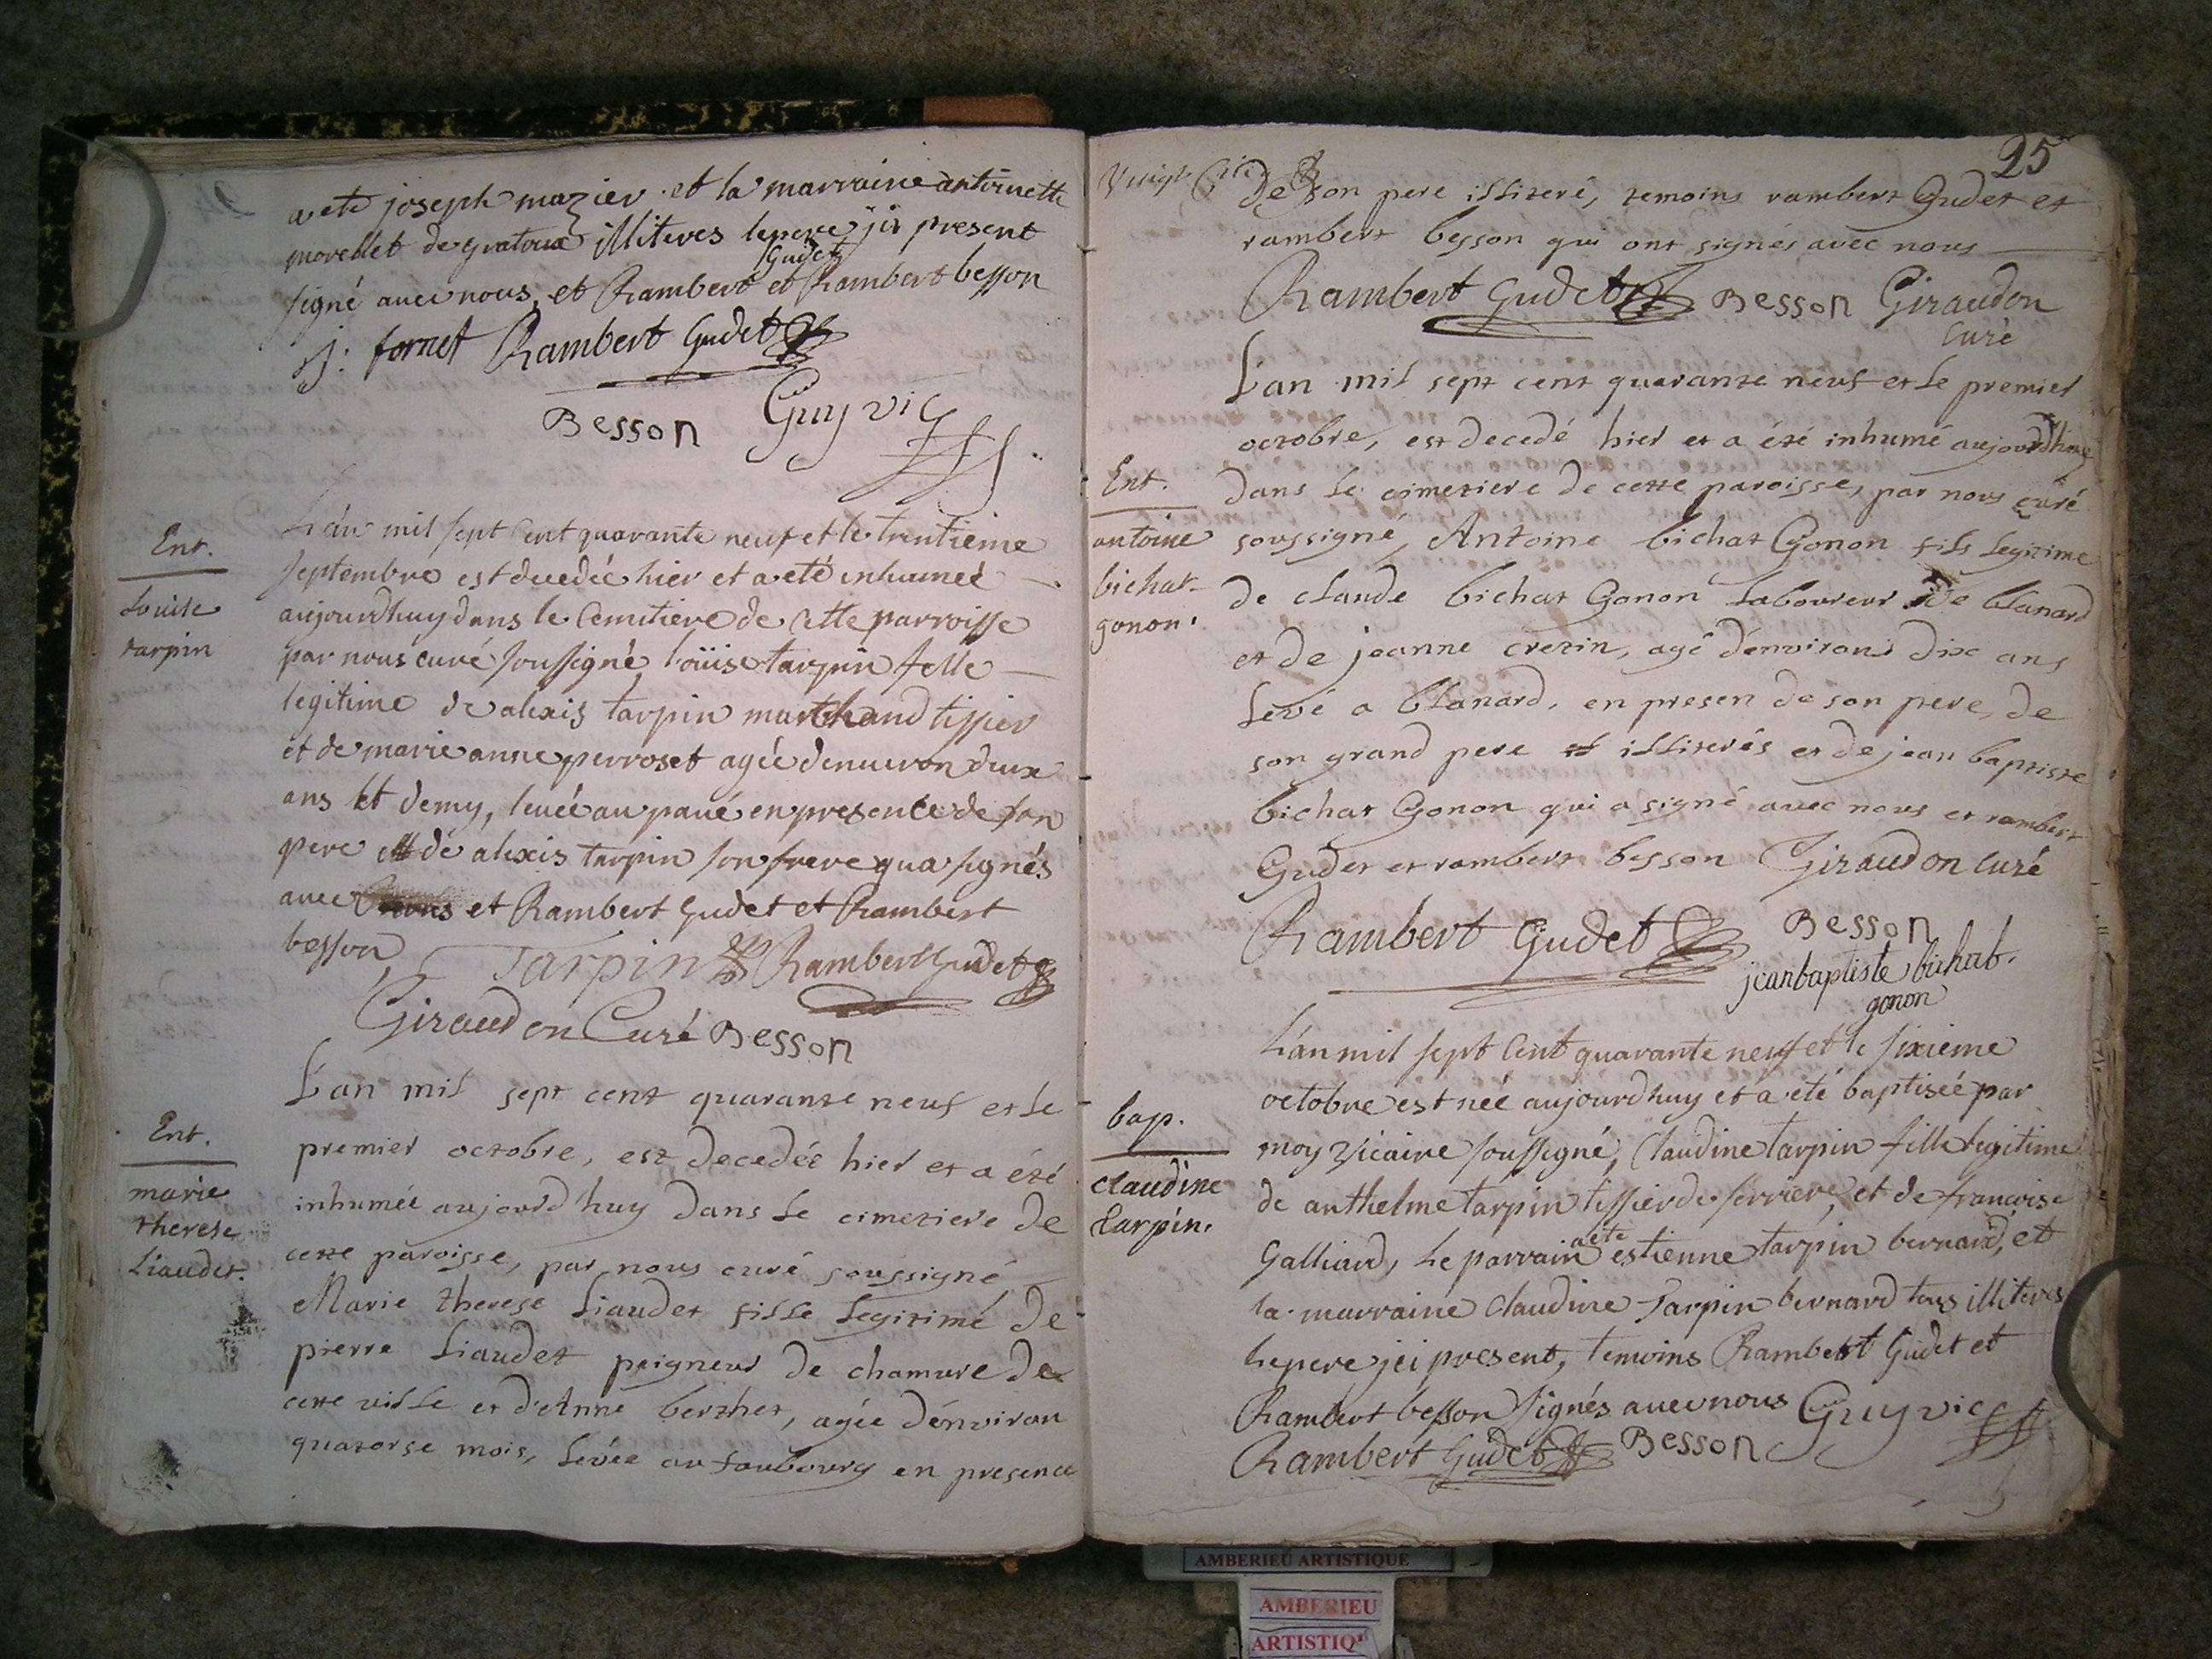 a ete joseph mazier et la marraine antoinette
morellet de gratoux illiteres le pere jci present
Gudet
signé avec nous, et Rambert et Rambert besson
J: fornet Rambert Gudet
Besson Guy vic
Ent.
Louise
tarpin
L'an mil sept Cent quarante neuf et le trentieme
septembre est decedée hier et a eté inhumée
aujourdhuy dans le Cemitiere de Cette parroisse
par nous curé soussigné Loüise tarpin felle
legitime de alexis tarpin marchand tissier
et de marie anne perroset agée denuiron deux
ans et demy, leuée au paué en presence de son
pere et de alexis tarpin son frere qua signés
avec nous et Rambert Gudet et Rambert
besson
Tarpin Rambert Gudet
Giraudon Curé Besson
Ent.
marie
therese
Liaudet.
L'an mil sept cent quarante neuf et le
premier octobre, est decedée hier et a été
inhumée aujourd'huy dans le cimetiere de
cette paroisse, par nous curé soussigné
Marie therese Liaudet fille legitimé de
pierre Liaudet peigneur de chamure de
cette ville et d'Anne berthet, agée d'environ
quatorse mois, levée au faubourg en presence
25
Vingt
de son pere illiteré, temoins rambert Gudet et
rambert besson qui ont signés avec nous
Rambert Gudet Besson Giraudon
Curé
Ent.
antoine
bichat-
gonon.
L'an mil sept cent quarante neuf et le premier
octobre, est decedé hier et a été inhumé aujourdhuy
dans le cimetiere de cette paroisse, par nous curé
soussigné, Antoine bichat Gonon fils legitime
de claude bichat Gonon laboureur de blanard
et de jeanne cretin, agé d'environ dix ans
levé a blanard, en presen de son pere, de
son grand pere illiterés et de jean baptiste
bichat Gonon qui a signé avec nous et rambert
Gudet et rambert besson Giraudon Curé
Rambert Gudet Besson
jean baptiste bichat.
gonon
bap.
claudine
tarpin.
L'an mil sept Cent quarante neuf et le sixieme
octobre est née aujourdhuy et a été baptisée par
moy vicaire soussigné, Claudine tarpin fille legitime
de anthelme tarpin tissier de serriere, et de francoise
Galliard, Le parrain a ete estienne tarpin bernard, et
la marraine Claudine Tarpin bernard tous illiteres
Le pere jci present, temoins Rambert Gudet et
Rambert besson signés avec nous Guy vic
Rambert Gudet Besson
AMBERIEU ARTISTIQUE
AMBERIEU
ARTISTIQ